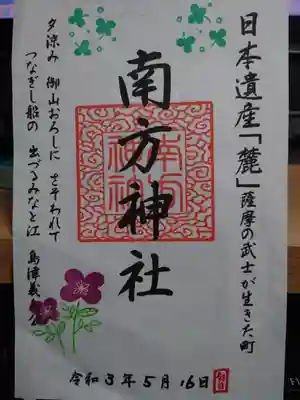 日本遺産「麓」薩摩の武士が生きた町
南方神社
夕涼み 御山おろしに さそわれて
つなぎし船の 出づるみなと江
島津義
令和3年5月16日